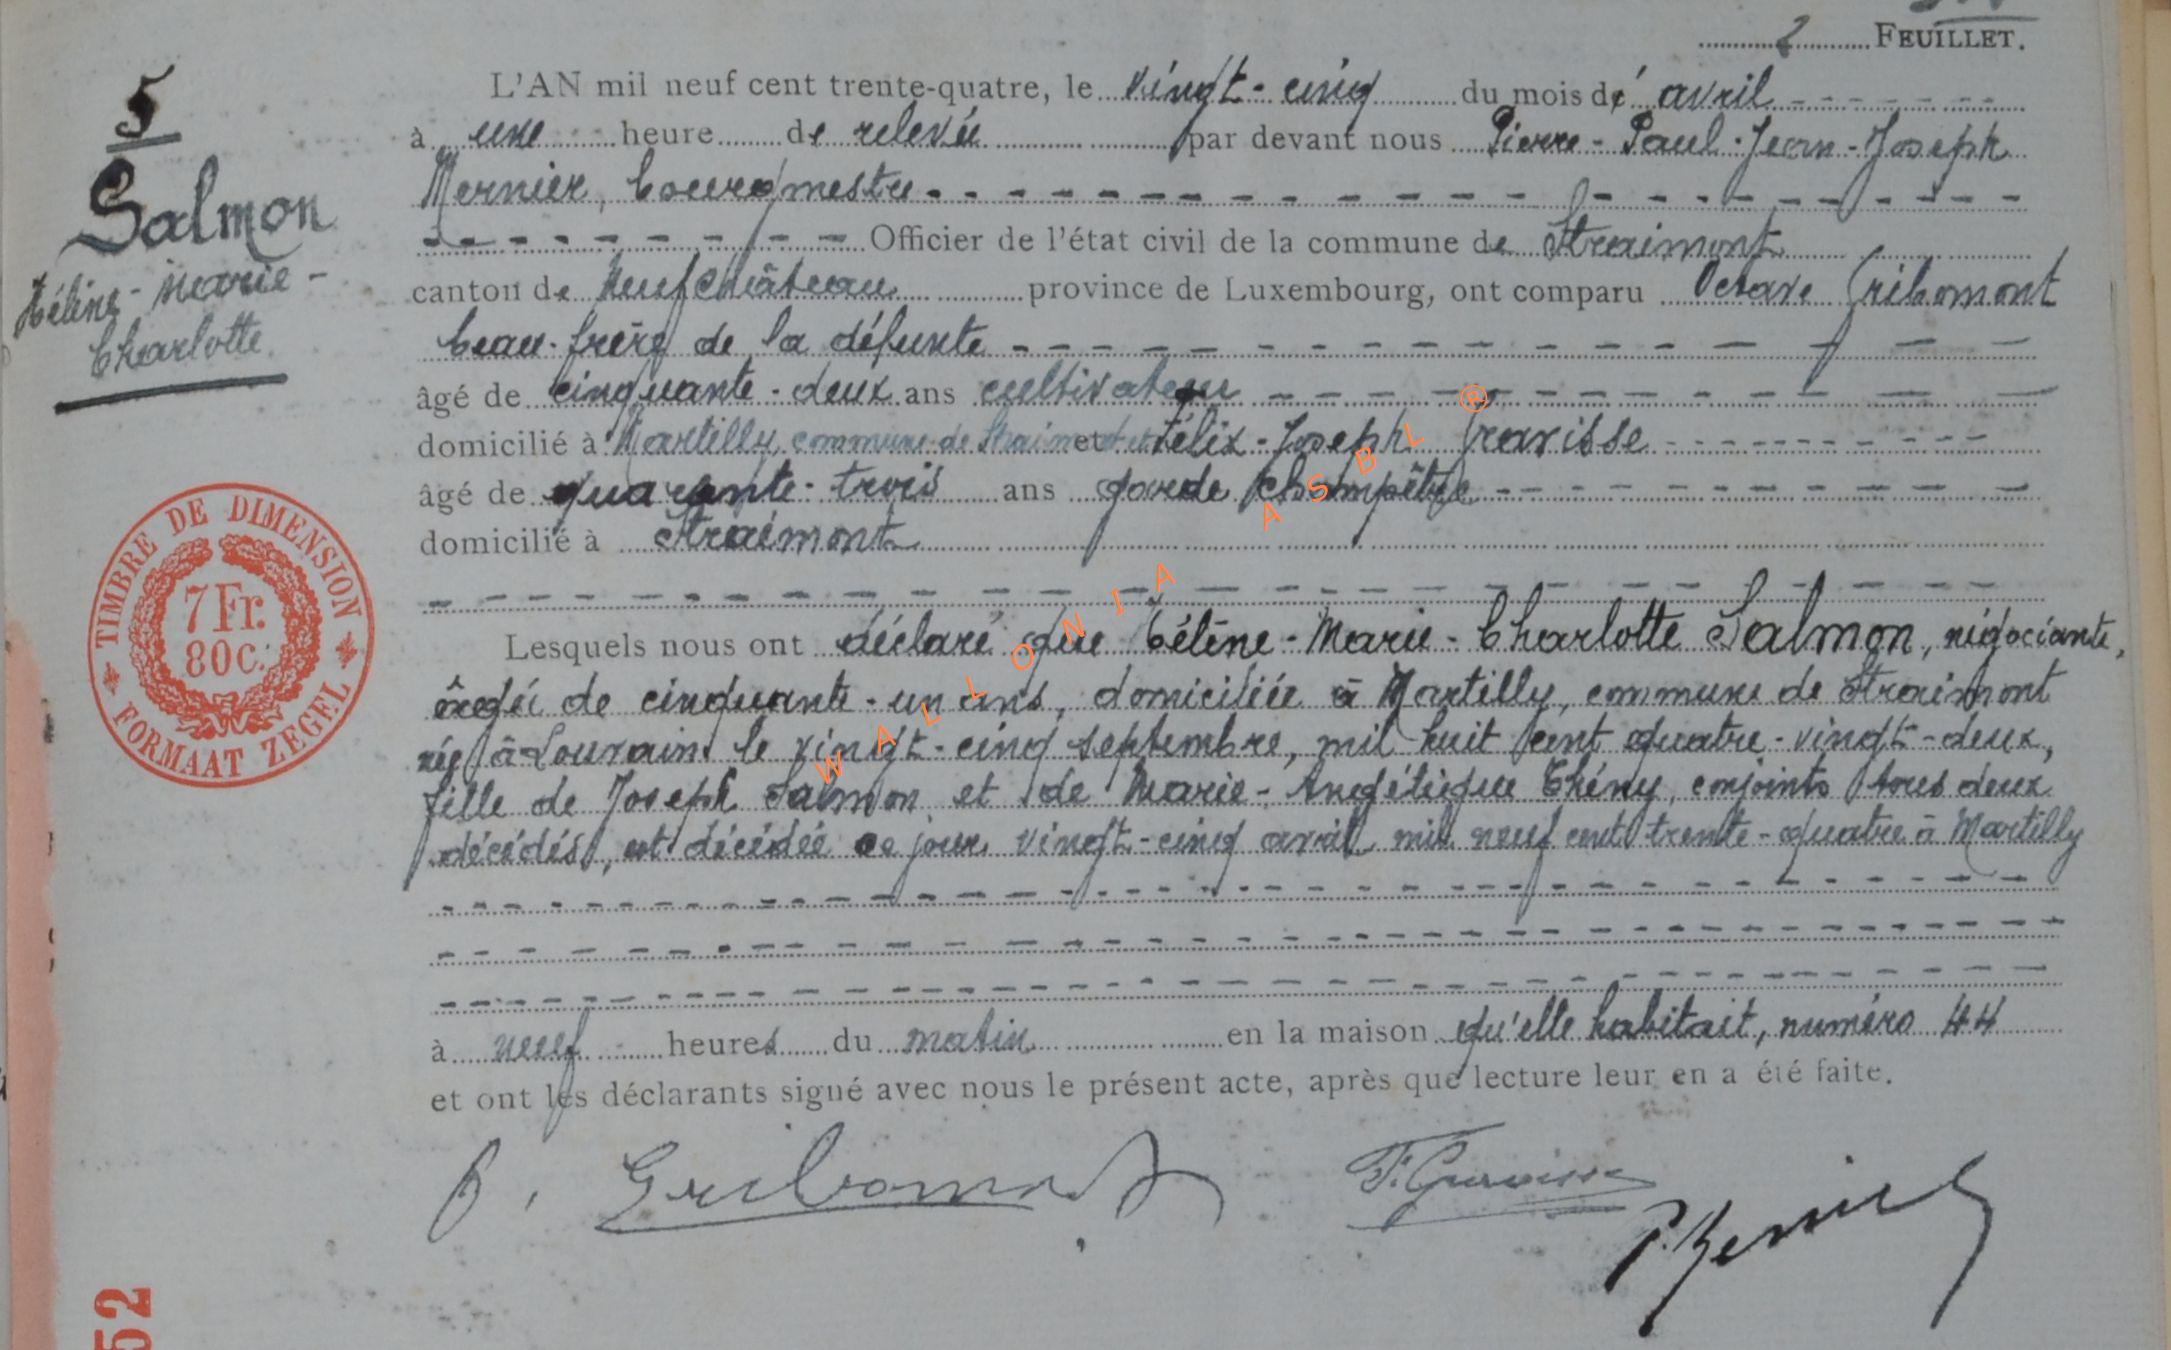 2 FEUILLET.
5
Salmon
Hélène-Marie-
Charlotte
L'AN mil neuf cent trente-quatre, le vingt-cinq du mois de avril
à une heure de relevée par devant nous Pierre-Paul-Jean-Joseph
Mernier, bourgmestre
Officier de l'état civil de la commune de Straimont
canton de Neufchâteau province de Luxembourg, ont comparu Octave Gribomont
beau-frère de la défunte
âgé de cinquante-deux ans cultivateur
domicilié à Martilly, commune de Straimont et Félix-Joseph Gravisse
âgé de quarante-trois ans garde champêtre
domicilié à Straimont
Lesquels nous ont déclaré que Célène-Marie-Charlotte Salmon, négociante,
âgée de cinquante-un ans, domiciliée à Martilly, commune de Straimont
née à Louvain le vingt-cinq septembre, mil huit cent quatre-vingt-deux,
fille de Joseph Salmon et de Marie-Angélique Thény, conjoints tous deux
décédés, est décédée ce jour vingt-cinq avril mil neuf cent trente-quatre à Martilly
à neuf heures du matin en la maison qu'elle habitait, numéro 44
et ont les déclarants signé avec nous le présent acte, après que lecture leur en a été faite.
O. Gribomont F. Gravisse
P. Mernier
TIMBRE DE DIMENSION
7 Fr.
80 C.
FORMAAT ZEGEL
52
WALLONIA ASBL ®